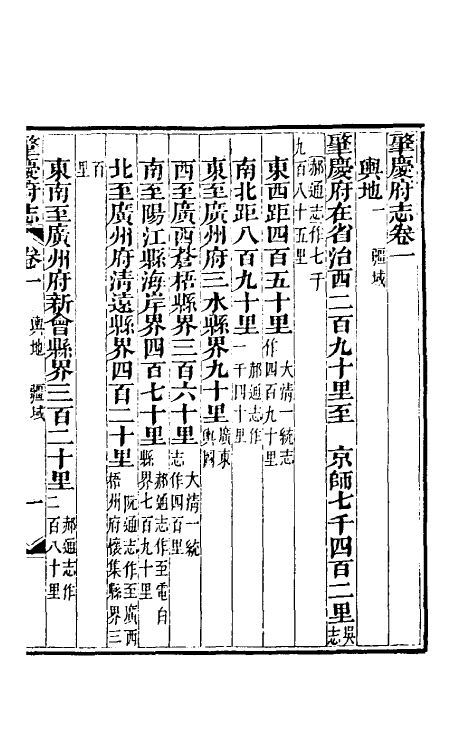 肇慶府志卷一
輿地一 疆域
肇慶府在省治西二百九十里至 京師七千四百二里 吳志
郝通志作七千
九百八十五里
東西距四百五十里 大清一統志作四百九十里
南北距八百九十里 郝通志作一千四十里
東至廣州府三水縣界九十里 廣東輿圖
西至廣西蒼梧縣界三百六十里 大清一統志作四百里
南至陽江縣海岸界四百七十里 郝通志作至電白縣界七百九十里
北至廣州府清遠縣界四百二十里 阮通志作至廣西梧州府懷集縣界三
百
里
東南至廣州府新會縣界三百二十里 郝通志作二百八十里
肇慶府志 卷一 輿地 疆域 一